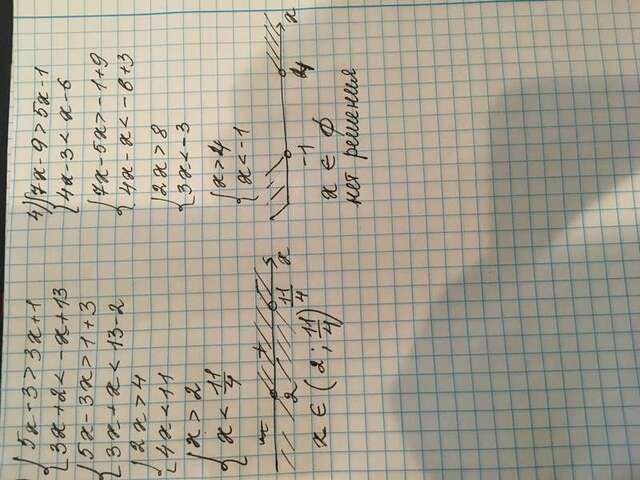 5x-3>3x+1
3x+2<-x+13
5x-3x>1+3
3x+x<13-2
2x>4
4x<11
x>2
x<11/4
+ -
2 11/4 x
x ∈ (2; 11/4)
4) 7x-9>5x-1
4x-3<x-6
7x-5x>-1+9
4x-x<-6+3
2x>8
3x<-3
x>4
x<-1
-1 4 x
x ∈ ϕ
нет решения